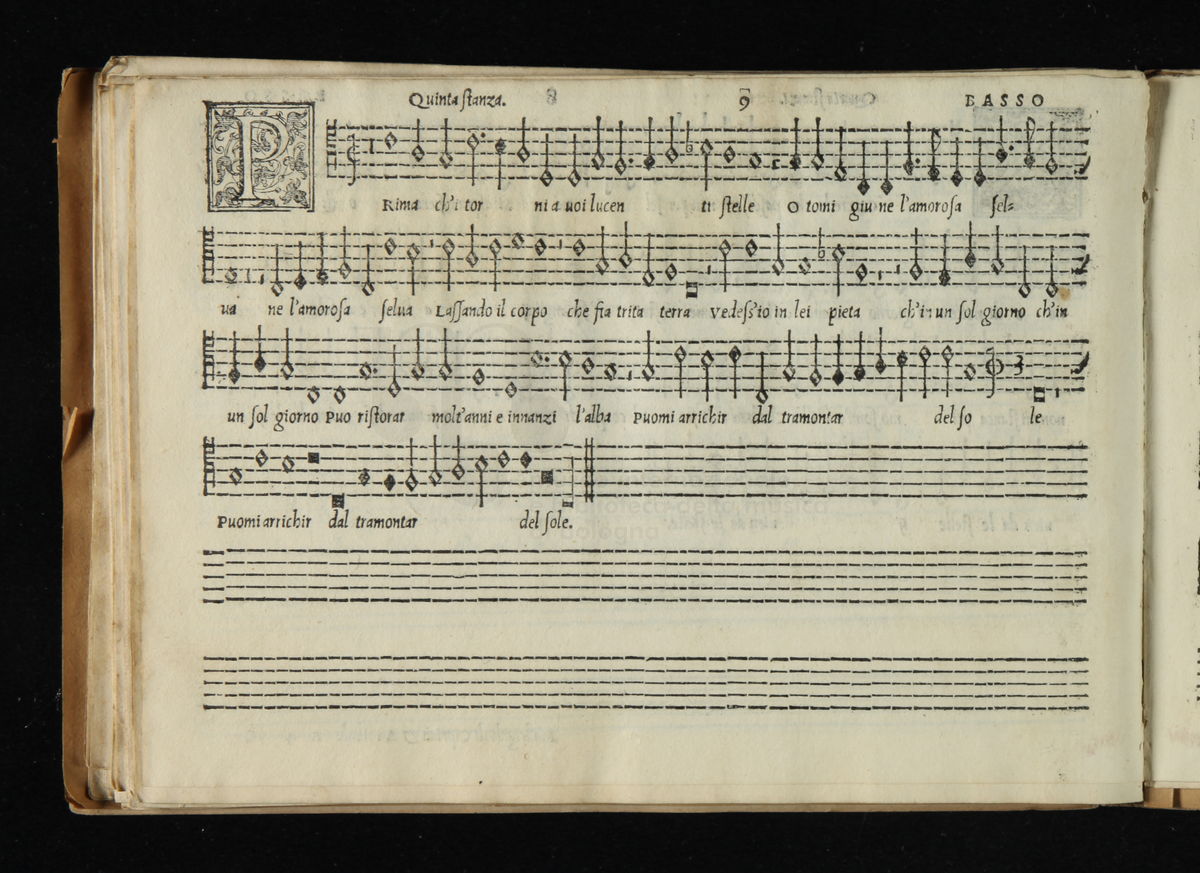 Quinta ſtanza. 9 BASSO
PRima ch'i tor ni a uoi lucen ti ſtelle O tomi giu ne l'amoroſa ſel=
ua ne l'amoroſa ſelua Laſſando il corpo che fia trita terra Vedeſs'io in lei pieta ch'in un ſol giorno ch'in
un ſol giorno Puo riſtorar molt'anni e innanzi l'alba Puomi arrichir dal tramontar del ſo le
Puomi arrichir dal tramontar del ſole.
della musica
bologna